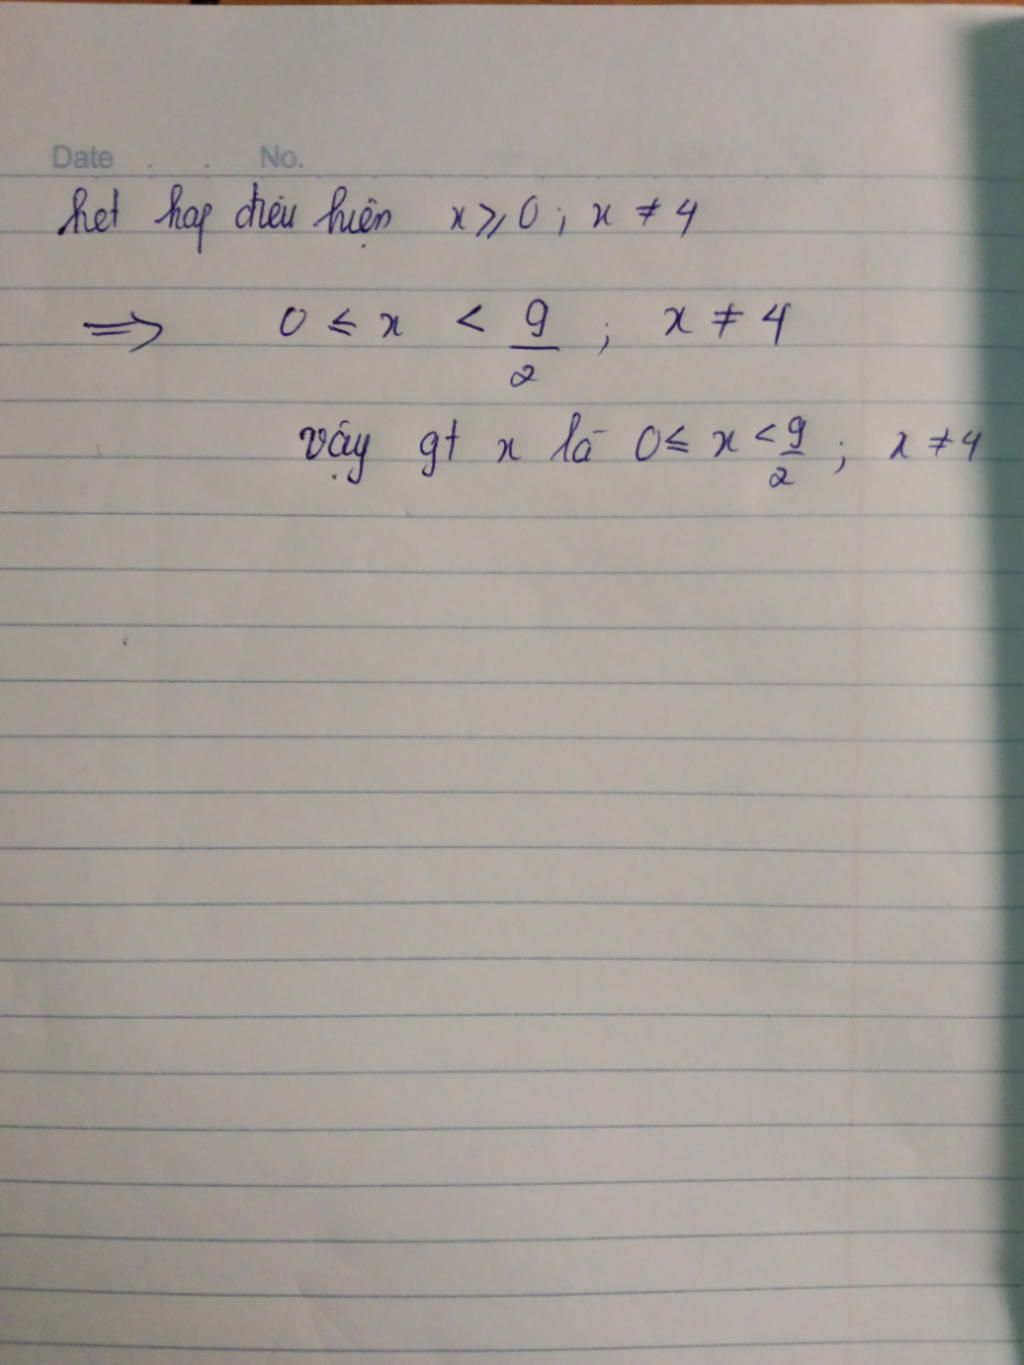 Date . . No.
kết hợp điều kiện x ⩾ 0 ; x ≠ 4
⇒ 0 ≤ x < 9/2 ; x ≠ 4
vậy gt x là 0 ≤ x < 9/2 ; x ≠ 4